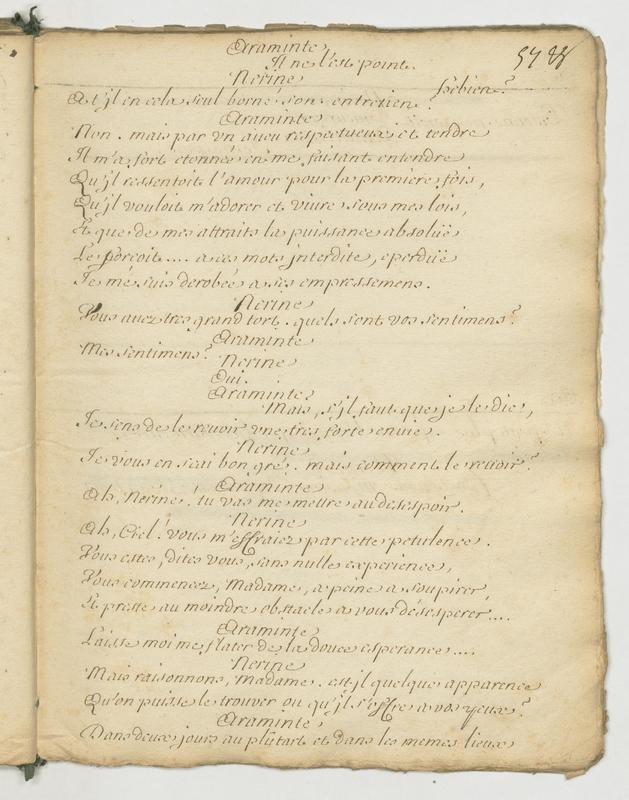 Araminte
57 88
Il ne l'est point.
Nerine
hebien?
Ast'jl en cela seul borné son entretien.
Araminte
Non. mais par vn aueu respectueux et tendre
Il m'a fort etonnée en me faisant entendre
Qu'jl ressentoit l'amour pour la premiere fois,
Qu'jl vouloit m'adorer et viure sous mes lois,
Et que de mes attraits la puissance absoluë
Le forçoit.... a ces mots jnterdite, eperduë
Je me suis derobée a ses empressemens.
Nerine
Vous auez tres grand tort. quels sont vos sentimens?
Araminte
Mes sentimens?
Nerine
Oui.
Araminte
Mais, s'jl faut que je le die,
Je sens de le reuoir vne tres forte enuie.
Nerine
Je vous en scai bon gré. mais comment le reuoir?
Araminte
Ah, Nerine! tu vas me mettre au desespoir.
Nerine
Ah, Ciel! vous m'effraiez par cette petulence.
Vous estes, dites vous, sans nulle experience,
Vous commencez, Madame, a peine a soupirer,
Et preste au moindre obstacle a vous désesperer....
Araminte
Laisse moi me flater de la douce esperance....
Nerine
Mais raisonnons, Madame. est-jl quelque apparence
Qu'on puisse le trouver ou qu'jl s'offre a vos yeux?
Araminte
Dans deux jours au plûtart et dans les memes lieux